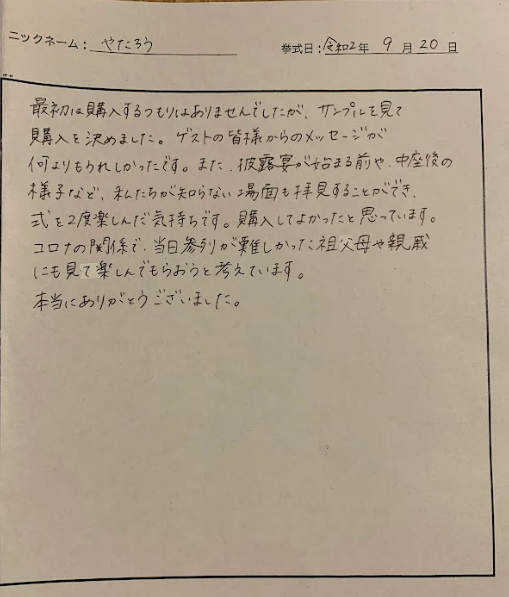 ニックネーム： やたろう
挙式日：令和2年 9月20日
最初は購入するつもりはありませんでしたが、サンプルを見て
購入を決めました。ゲストの皆様からのメッセージが
何よりもうれしかったです。また、披露宴が始まる前や、中座後の
様子など、私たちが知らない場面も拝見することができ、
式を2度楽しんだ気持ちです。購入してよかったと思っています。
コロナの関係で、当日参列が難しかった祖父母や親戚
にも見て楽しんでもらおうと考えています。
本当にありがとうございました。